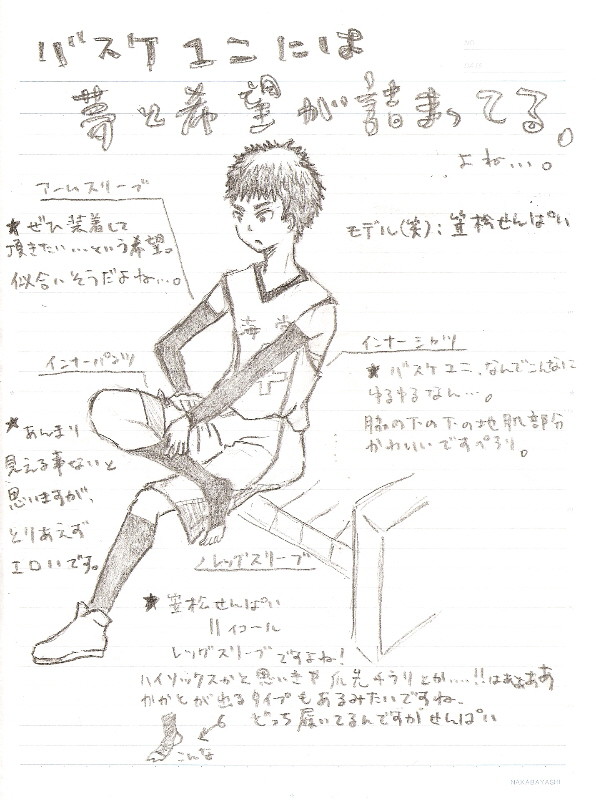 バスケユニには
夢と希望が詰まってる。
よね…。
アームスリーブ
★ぜひ装着して
頂きたい…という希望。
似合いそうだよね…。
モデル(笑):笠松せんぱい
海常
インナーシャツ
★バスケユニ、なんでこんなに
ゆるゆるなん…。
脇の下の下の地肌部分
かわいいですぺろり。
インナーパンツ
★あんまり
見える事ないと
思いますが、
とりあえず
エロいです。
レッグスリーブ
★笠松せんぱい
||イコール
レッグスリーブですよね!
ハイソックスかと思いきや爪先チラリとか…!!はぁぁぁあ
かかとが出るタイプもあるみたいですね。
どっち履いてるんですかせんぱい
こんな
NAKABAYASHI